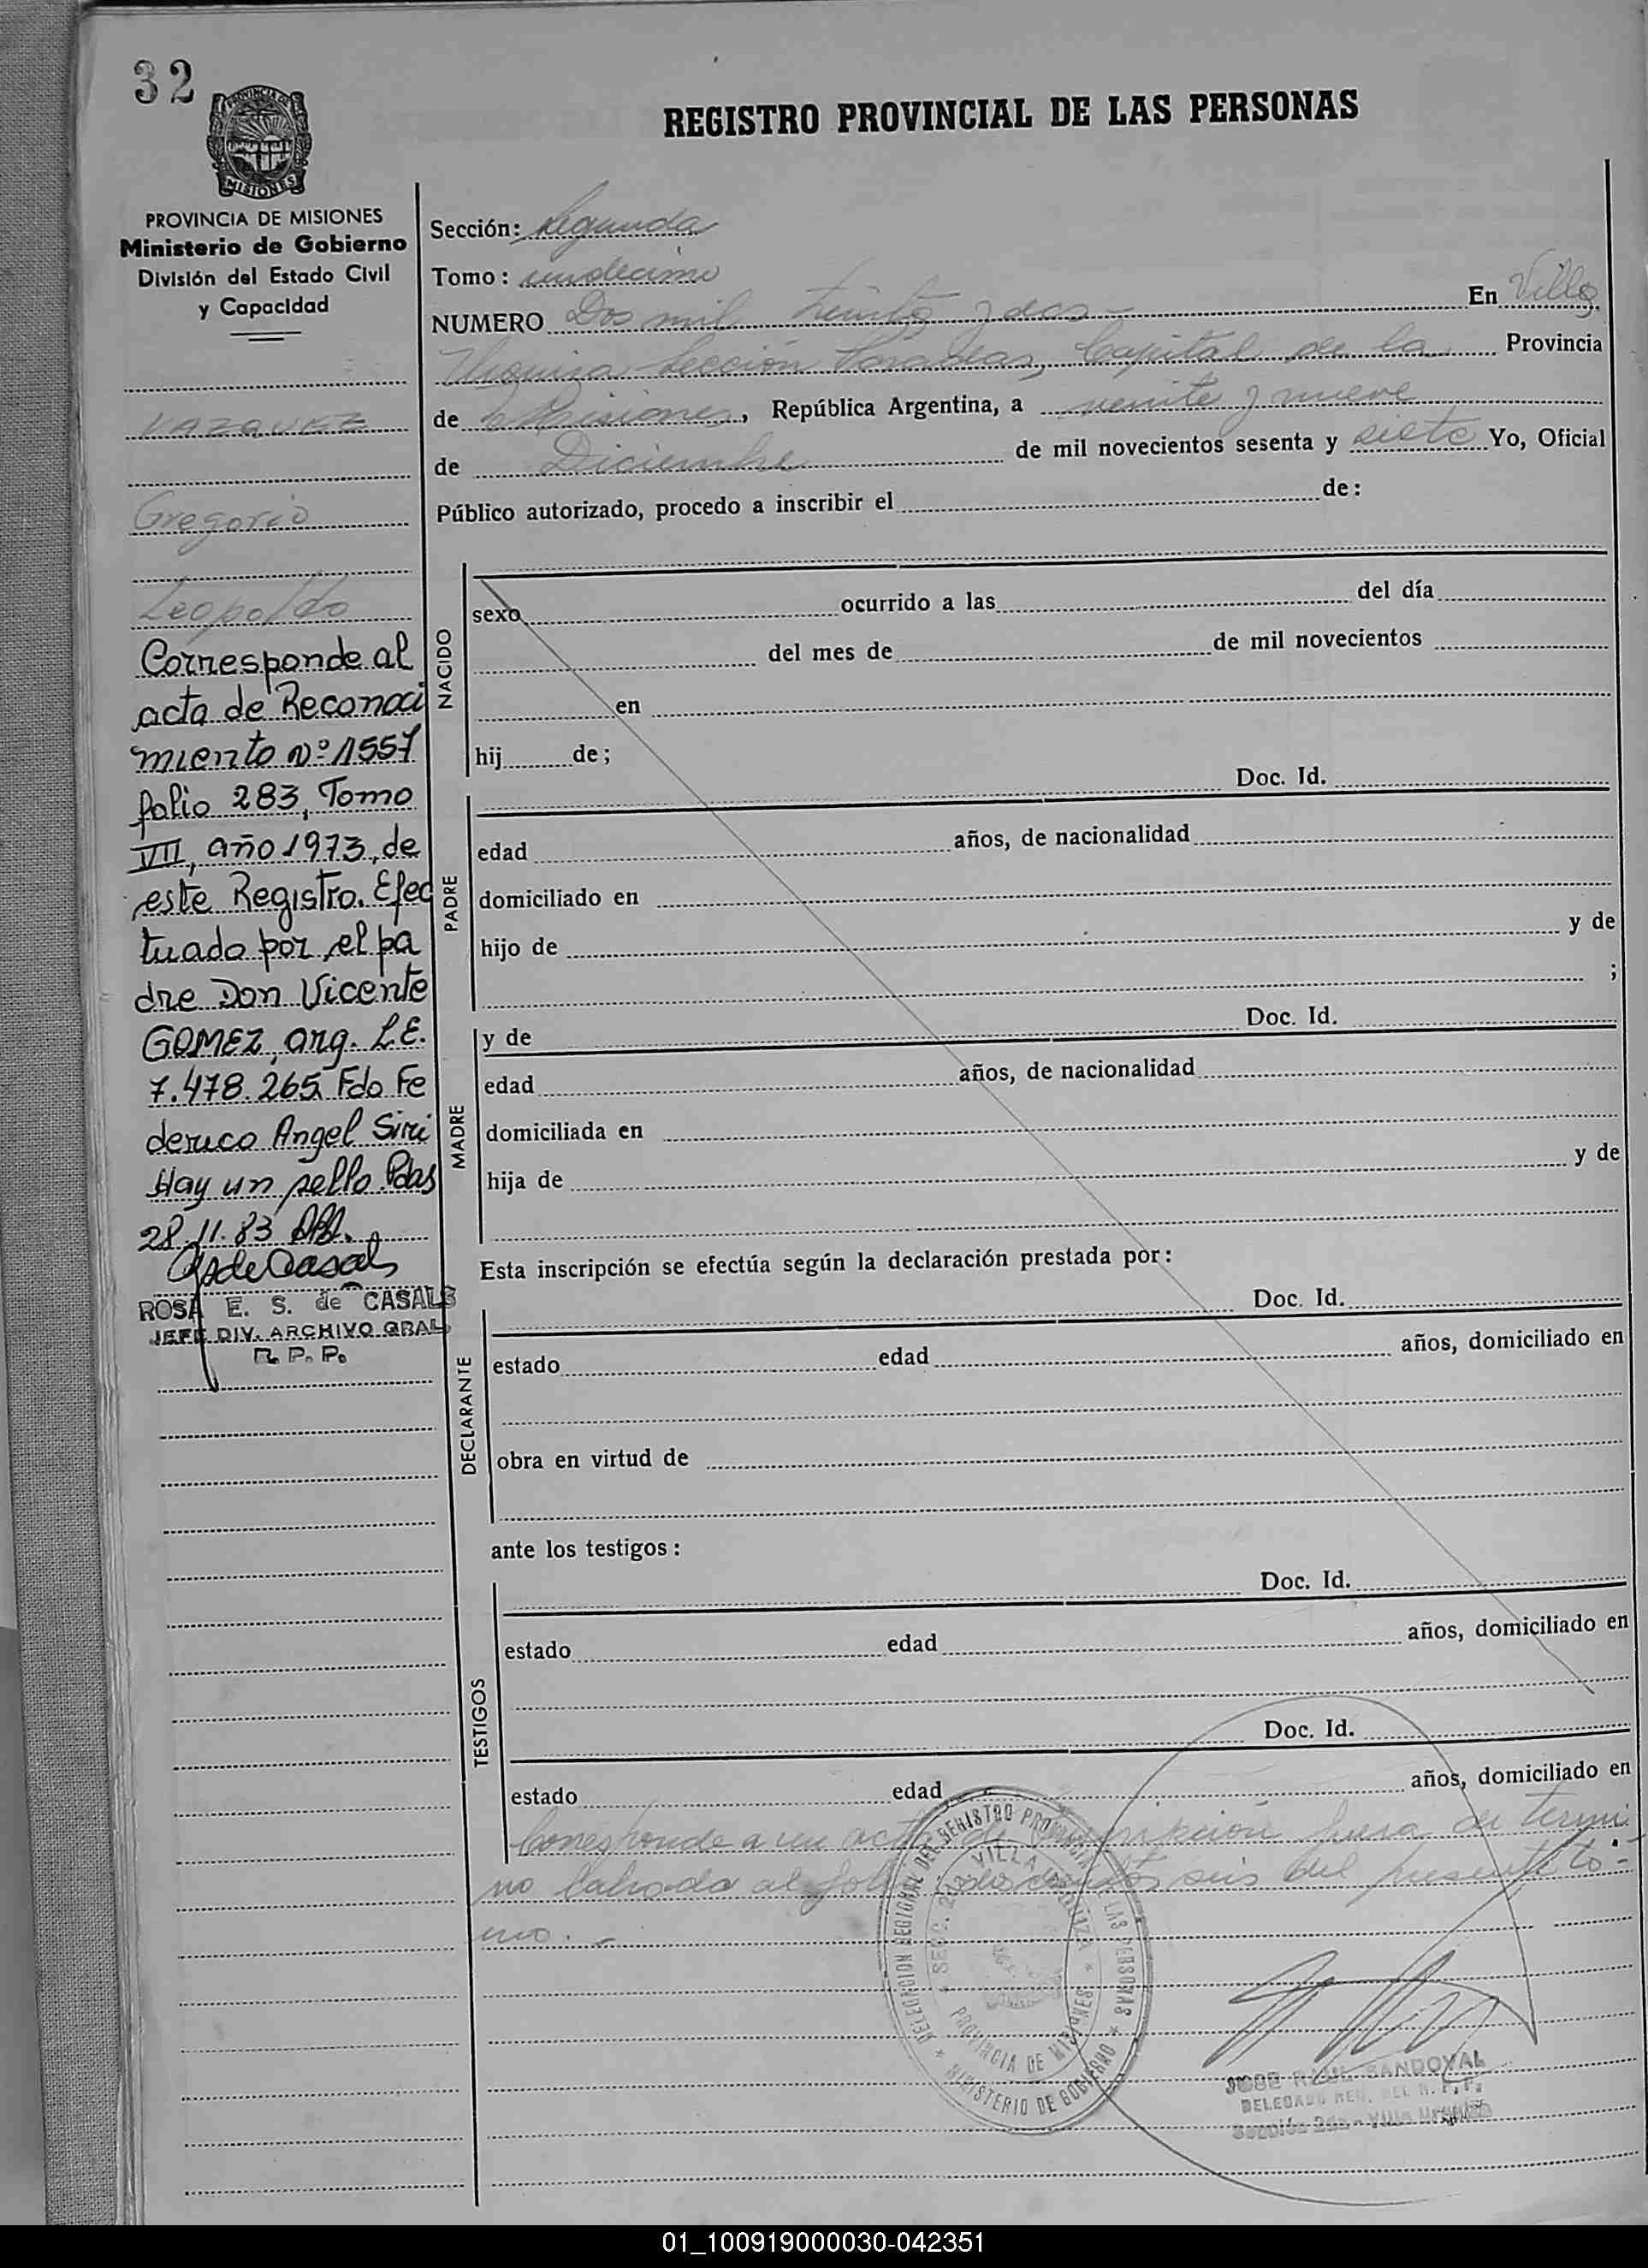 32
PROVINCIA DE
MISIONES
REGISTRO PROVINCIAL DE LAS PERSONAS
PROVINCIA DE MISIONES
Ministerio de Gobierno
División del Estado Civil
y Capacidad
VAZQUEZ
Gregorio
Leopoldo
Corresponde al
acta de Reconoci
miento Nº 1557
folio 283, Tomo
VII, año 1973, de
este Registro. Efec
tuado por el pa
dre Don Vicente
GOMEZ, arg. L.E.
7.478.265. Fdo Fe
derico Angel Siri
Hay un sello Pdas
28.11.83
ROSA E. S. de CASALS
JEFE DIV. ARCHIVO GRAL
R. P. P.
Sección: Segunda
Tomo: undecimo
NUMERO Dos mil treinta y dos - En Villa
Urquiza Sección Posadas, Capital de la Provincia
de Misiones, República Argentina, a veinte y nueve
de Diciembre de mil novecientos sesenta y siete Yo, Oficial
Público autorizado, procedo a inscribir el de:
NACIDO
sexo ocurrido a las del día
del mes de de mil novecientos
en
hij de;
Doc. Id.
PADRE
edad años, de nacionalidad
domiciliado en
hijo de y de
;
y de Doc. Id.
MADRE
edad años, de nacionalidad
domiciliada en
hija de y de
Esta inscripción se efectúa según la declaración prestada por:
Doc. Id.
DECLARANTE
estado edad años, domiciliado en
obra en virtud de
ante los testigos:
Doc. Id.
TESTIGOS
estado edad años, domiciliado en
Doc. Id.
estado edad años, domiciliado en
Corresponde a un acta de inscripción fuera de termi
no labrada al folio doscientos seis del presente to-
mo. -
DELEGACION REGIONAL DEL REGISTRO PROVINCIAL DE LAS PERSONAS
* MINISTERIO DE GOBIERNO *
* SECC. 2da VILLA URQUIZA *
PROVINCIA DE MISIONES
JOSE RAUL SANDOVAL
DELEGADO REG. DEL R. P. P.
Sección 2da - Villa Urquiza
01_100919000030-042351